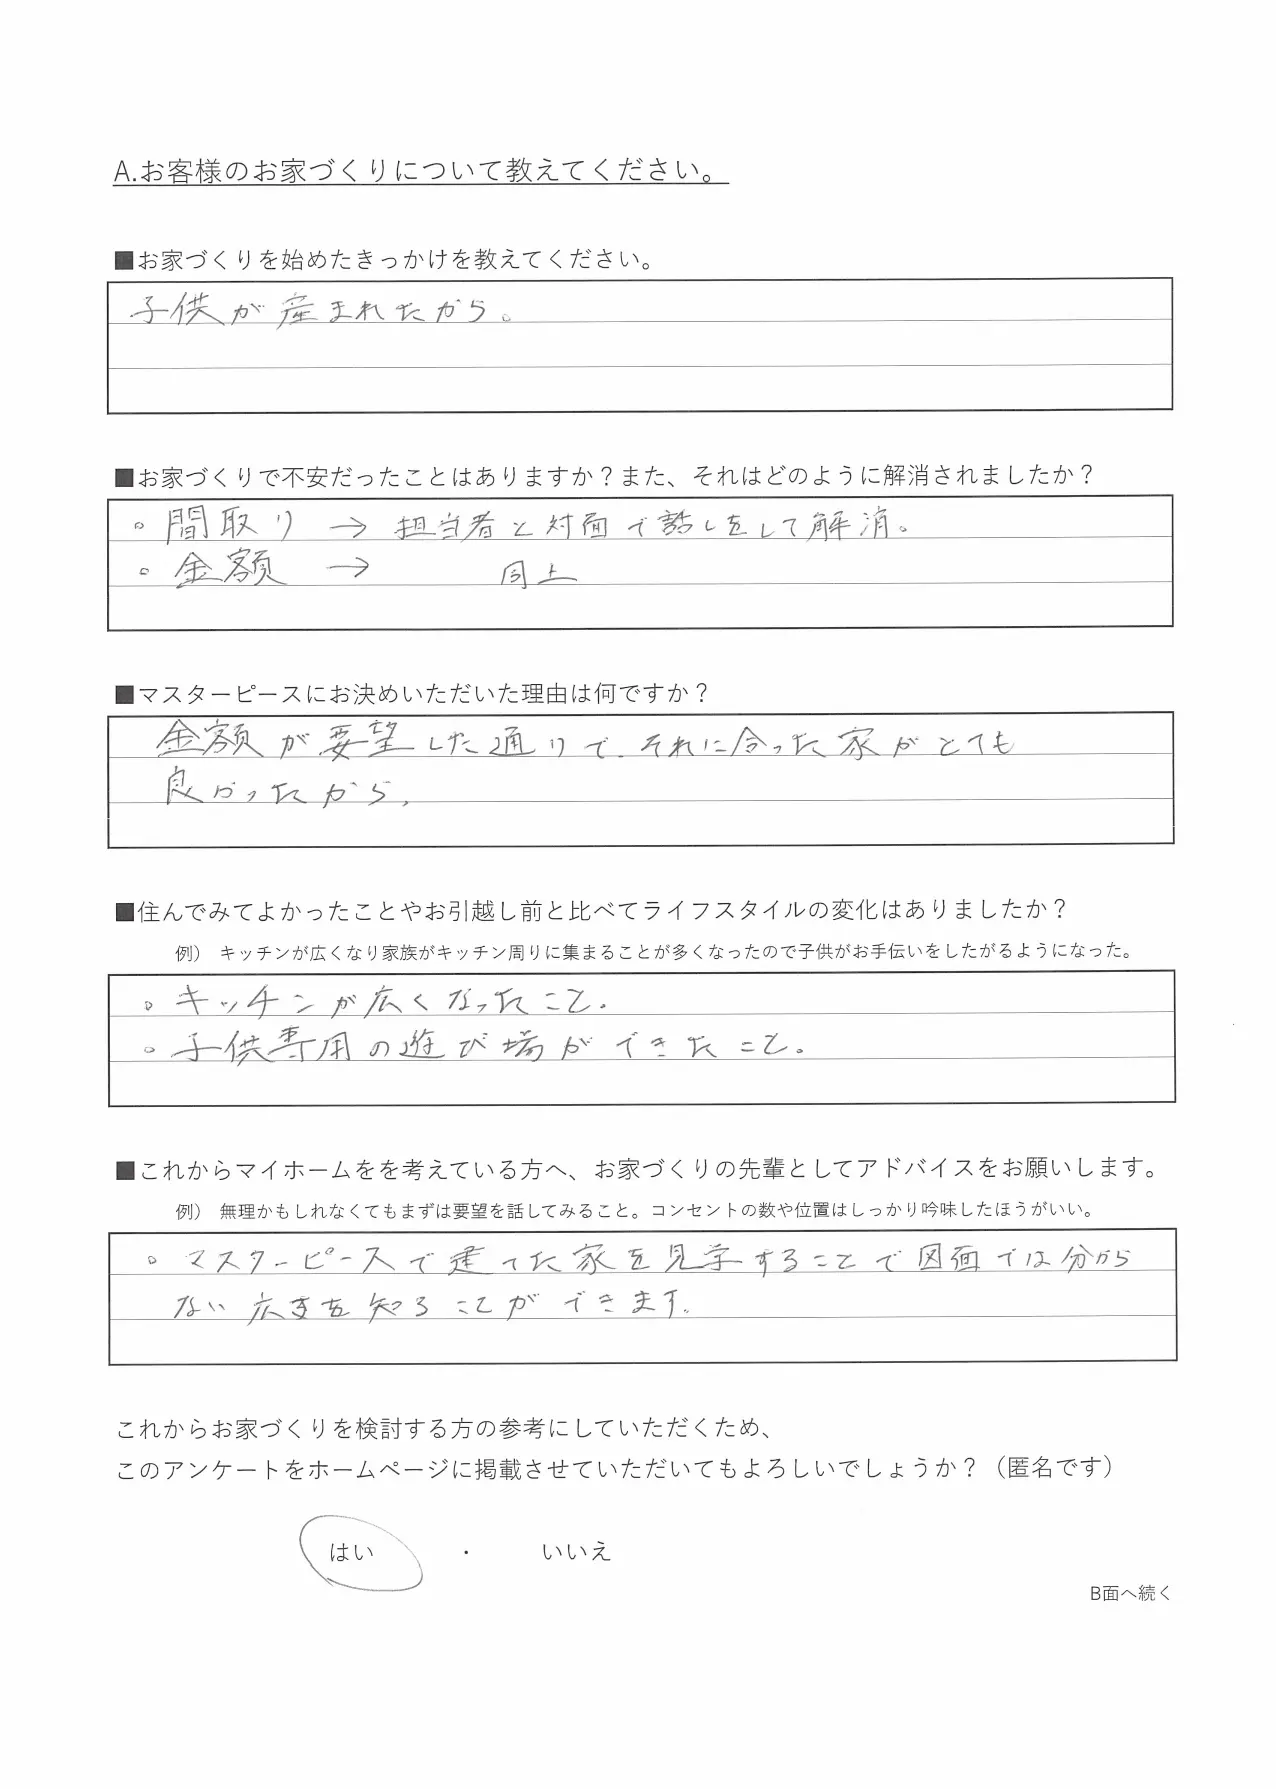 A.お客様のお家づくりについて教えてください。
■お家づくりを始めたきっかけを教えてください。
子供が産まれたから。
■お家づくりで不安だったことはありますか？また、それはどのように解消されましたか？
。間取り → 担当者と対面で話しをして解消。
。金額 → 同上
■マスターピースにお決めいただいた理由は何ですか？
金額が要望した通りで、それに合った家がとても
良かったから。
■住んでみてよかったことやお引越し前と比べてライフスタイルの変化はありましたか？
例） キッチンが広くなり家族がキッチン周りに集まることが多くなったので子供がお手伝いをしたがるようになった。
。キッチンが広くなったこと。
。子供専用の遊び場ができたこと。
■これからマイホームをを考えている方へ、お家づくりの先輩としてアドバイスをお願いします。
例） 無理かもしれなくてもまずは要望を話してみること。コンセントの数や位置はしっかり吟味したほうがいい。
。マスターピースで建てた家を見学することで図面では分から
ない広さを知ることができます。
これからお家づくりを検討する方の参考にしていただくため、
このアンケートをホームページに掲載させていただいてもよろしいでしょうか？（匿名です）
はい ・ いいえ
B面へ続く